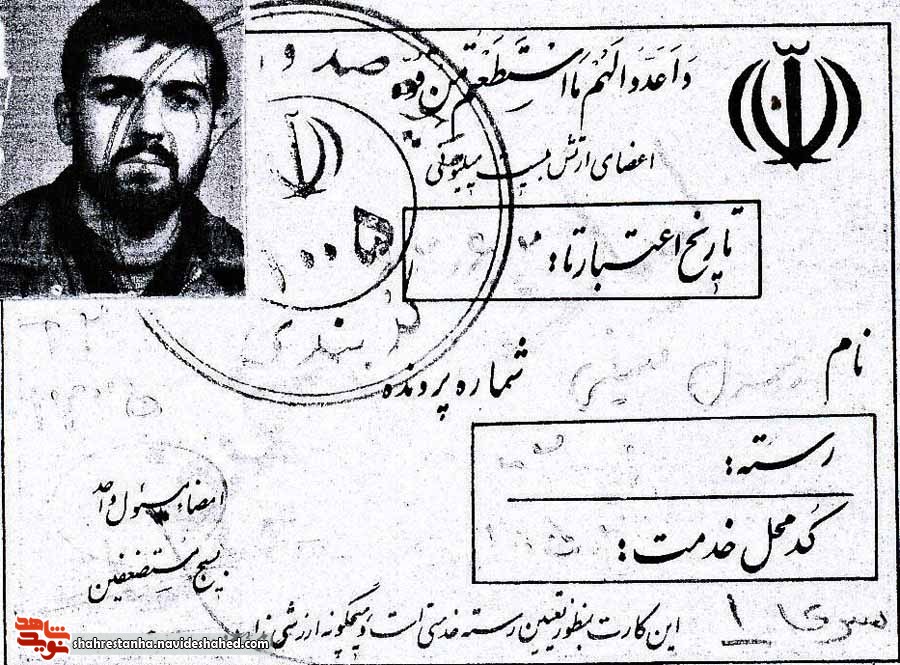 وَاَعِدّوالَهُم مَا استَطَعتُم مِن قُوَّه
اعضای ارتش بیست میلیونی
تاریخ اعتبار تا:
نام
شماره پرونده
رسته:
کد محل خدمت:
امضاء مسئول واحد
بسیج مستضعفین
سری ۱
این کارت بمنظور تعیین رسته خدمتی است و هیچگونه ارزشی ندارد
۱۰۰۵
نوید شاهد
shahrestanha.navideshahed.com